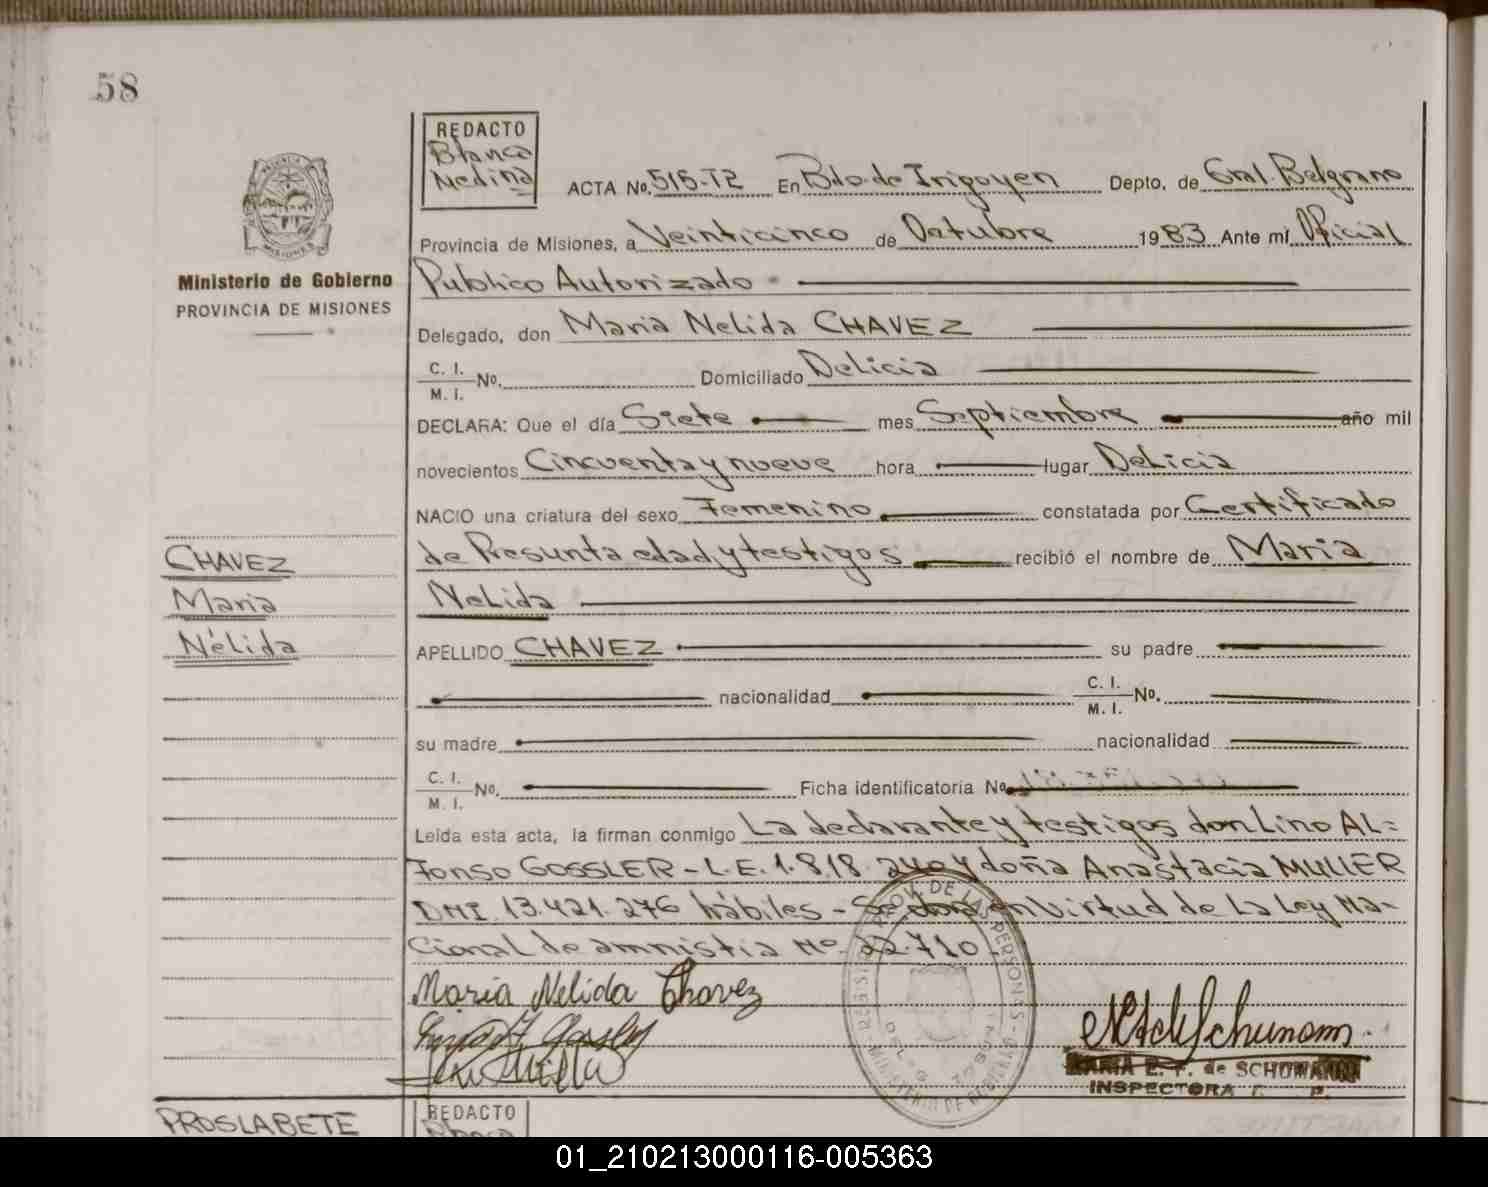 58
REDACTO
Blanca
Medina
ACTA No. 515-T2 En Bdo. de Irigoyen Depto, de Gral. Belgrano
Provincia de Misiones, a Veinticinco de Octubre 1983 Ante mí Oficial
Publico Autorizado
Ministerio de Gobierno
PROVINCIA DE MISIONES
Delegado, don Maria Nelida CHAVEZ
C. I.
M. I. No. Domiciliado Delicia
DECLARA: Que el día Siete mes Septiembre año mil
novecientos Cincuenta y nueve hora lugar Delicia
NACIO una criatura del sexo Femenino constatada por Certificado
de Presunta edad y testigos recibió el nombre de Maria
Nelida
CHAVEZ
Maria
Nélida
APELLIDO CHAVEZ su padre
nacionalidad C. I.
M. I. No.
su madre nacionalidad
C. I.
M. I. No. Ficha identificatoria No
Leída esta acta, la firman conmigo La declarante y testigos don Lino AL=
fonso GOSSLER - L.E. 1.818.240 y doña Anastacia MULLER
DNI. 13.421.276 hábiles - Se en virtud de La Ley Na-
cional de amnistia Nº 22.710
Maria Nelida Chavez
MARIA E. F. de SCHUMANN
INSPECTORA
PROSLABETE
REDACTO
Blanca
01_210213000116-005363